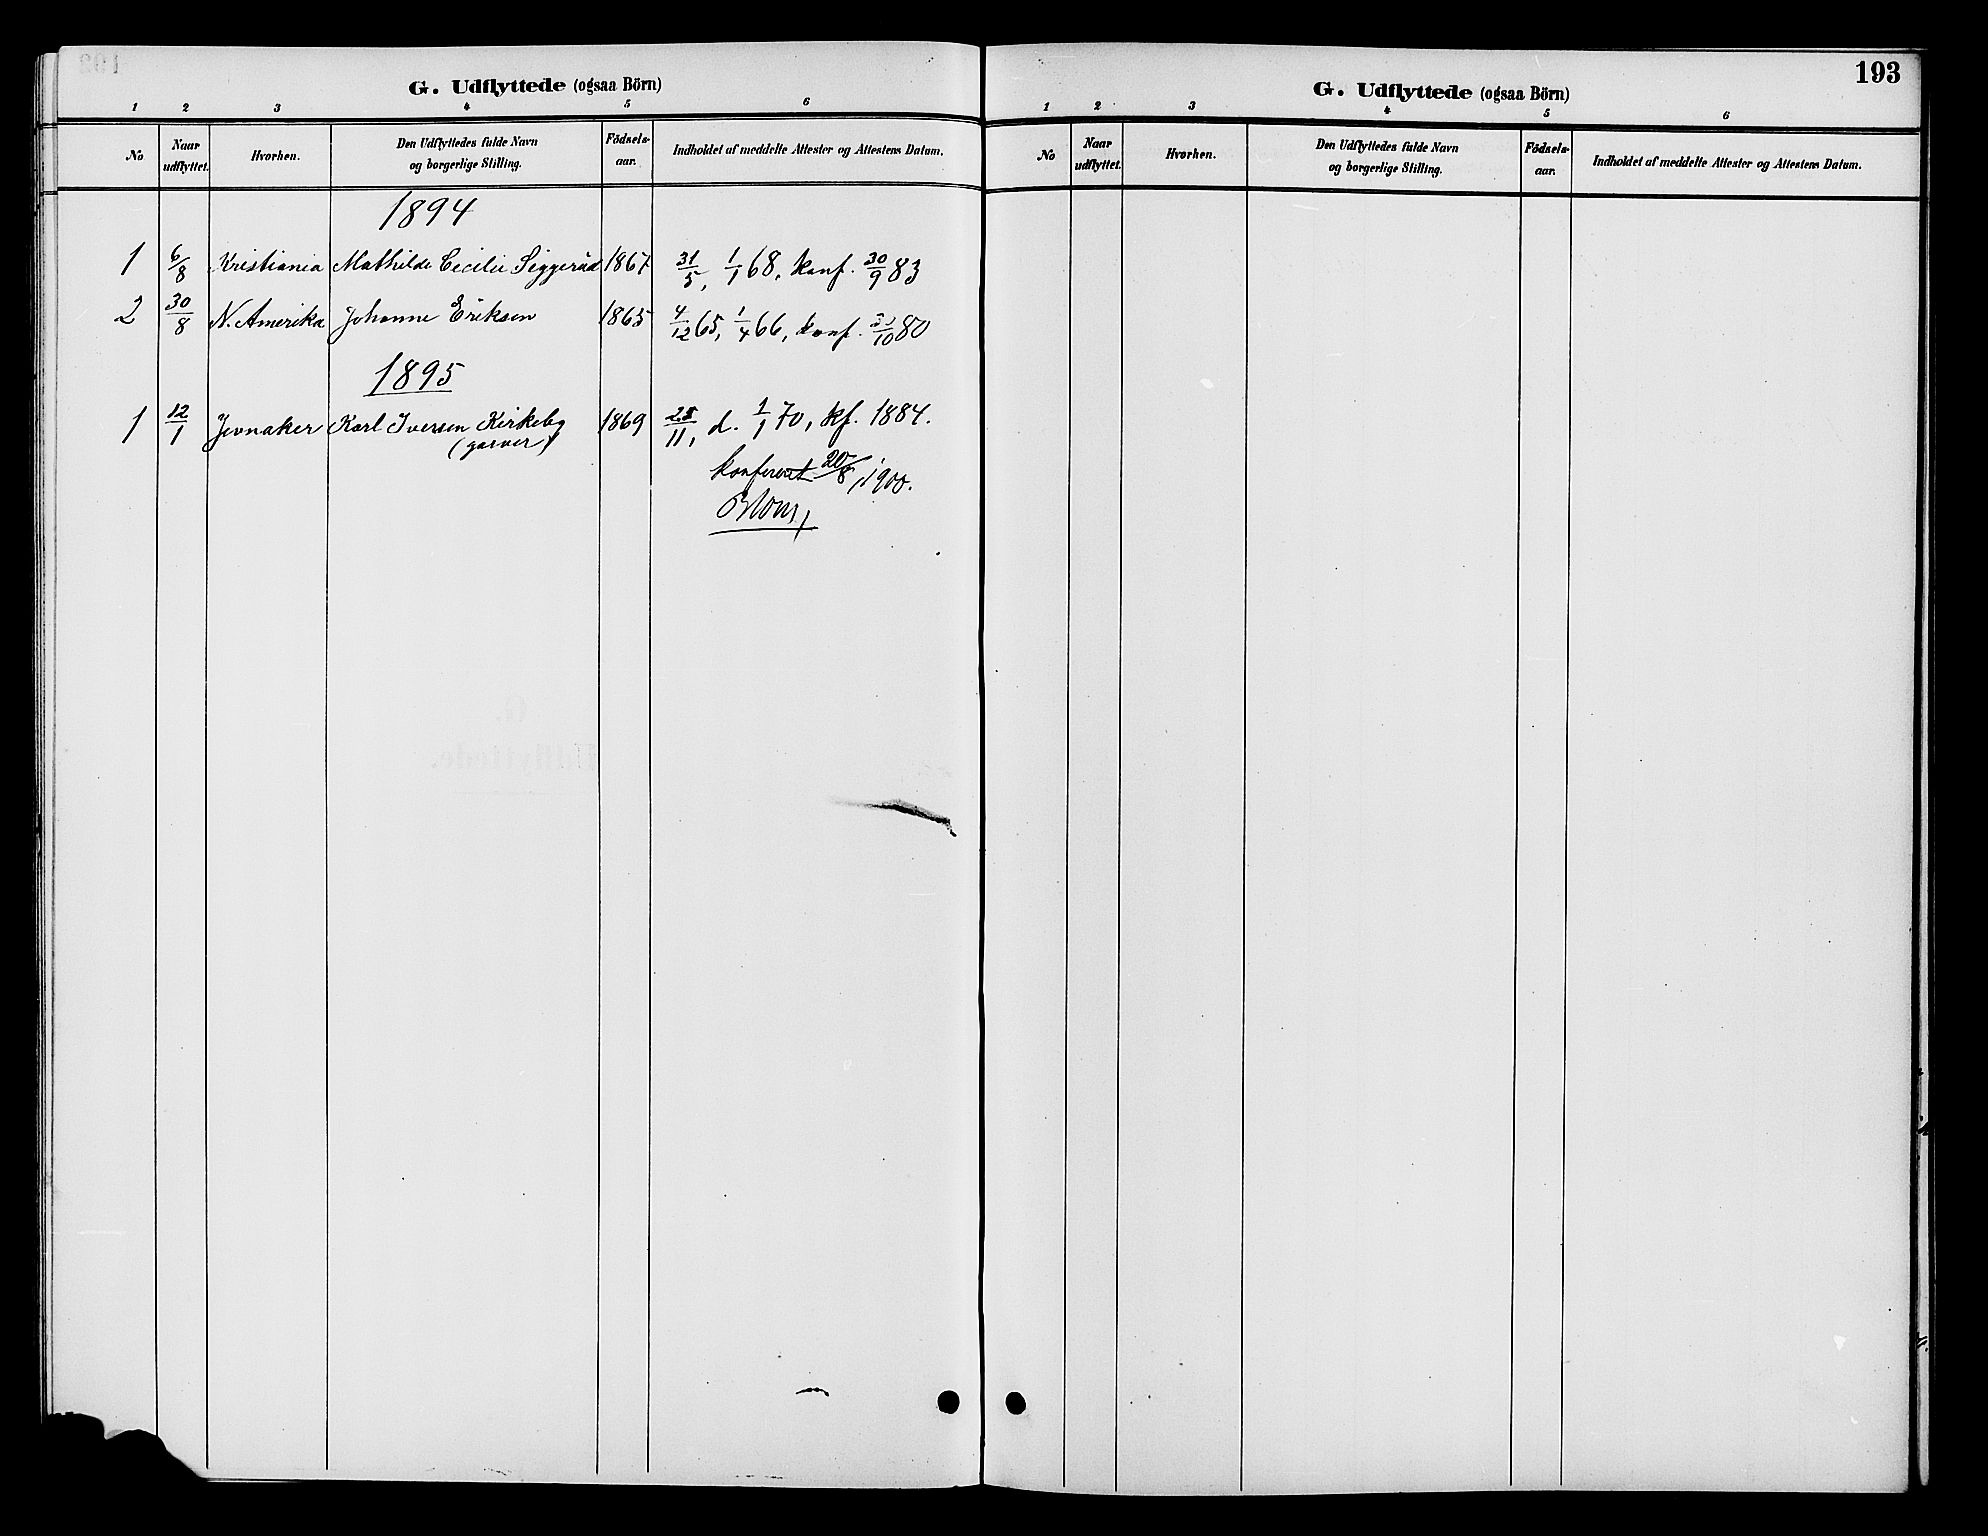 G. Udflyttede (ogsaa Börn)
1 2 3 4 5 6
No Naar udflyttet. Hvorhen. Den Udflyttedes fulde Navn og borgerlige Stilling. Födsels-aar. Indholdet af meddelte Attester og Attestens Datum.
1894
1 6/8 Kristiania Mathilde Cecilie Siggerud 1867 31/5, 1/1 68, konf. 30/9 83
2 30/8 N. Amerika Johanne Eriksen 1865 4/12 65, 1/4 66, konf. /10 80
1895
1 12/1 Jevnaker Karl Iversen Kirkeby 1869 25/11, d. 1/1 70, kf. 1884.
(garver)
konfereret 20/8 1900.
Blom
193
G. Udflyttede (ogsaa Börn)
1 2 3 4 5 6
No Naar udflyttet. Hvorhen. Den Udflyttedes fulde Navn og borgerlige Stilling. Födsels-aar. Indholdet af meddelte Attester og Attestens Datum.